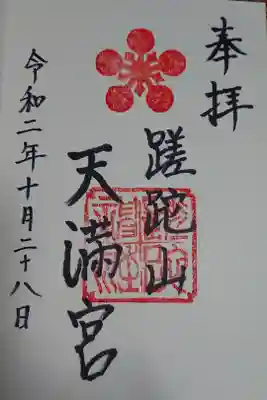 奉拝
蹉跎山
天満宮
令和二年十月二十八日